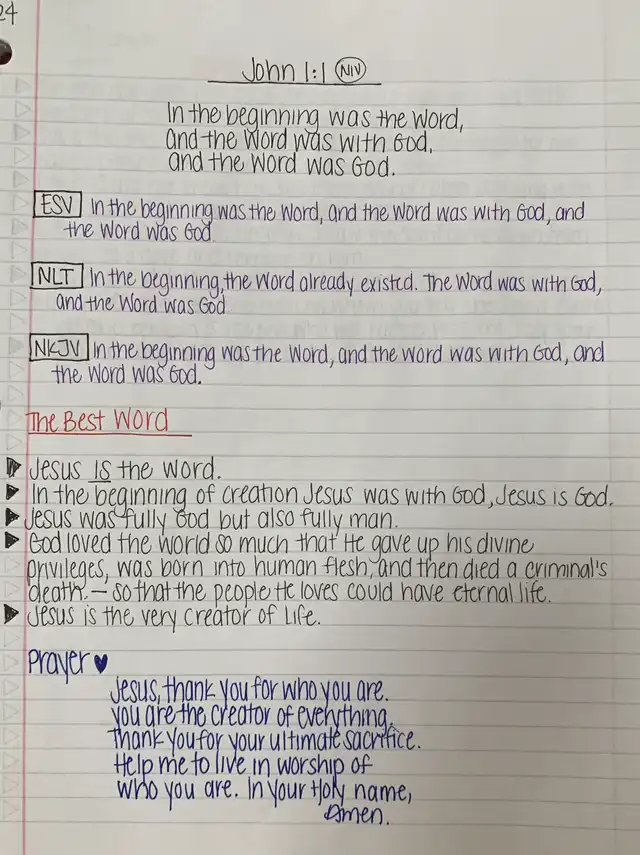 24
John 1:1 NIV
In the beginning was the Word,
and the Word was with God,
and the Word was God.
ESV In the beginning was the Word, and the Word was with God, and
the Word was God.
NLT In the beginning, the Word already existed. The Word was with God,
and the Word was God
NKJV In the beginning was the Word, and the Word was with God, and
the Word was God.
The Best Word
Jesus IS the Word.
In the beginning of creation Jesus was with God, Jesus is God.
Jesus was fully God but also fully man.
God loved the world so much that He gave up his divine
privileges, was born into human flesh, and then died a criminal's
death. — so that the people He loves could have eternal life.
Jesus is the very creator of Life.
Prayer ♥
Jesus, thank you for who you are.
You are the creator of everything.
Thank you for your ultimate sacrifice.
Help me to live in worship of
who you are. In your Holy name,
Amen.